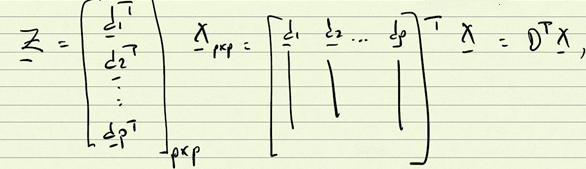 Z = [d₁ᵀ d₂ᵀ ⋮ dpᵀ]p×p X p×p = [d₁ d₂ ... dp]ᵀ X = DᵀX,